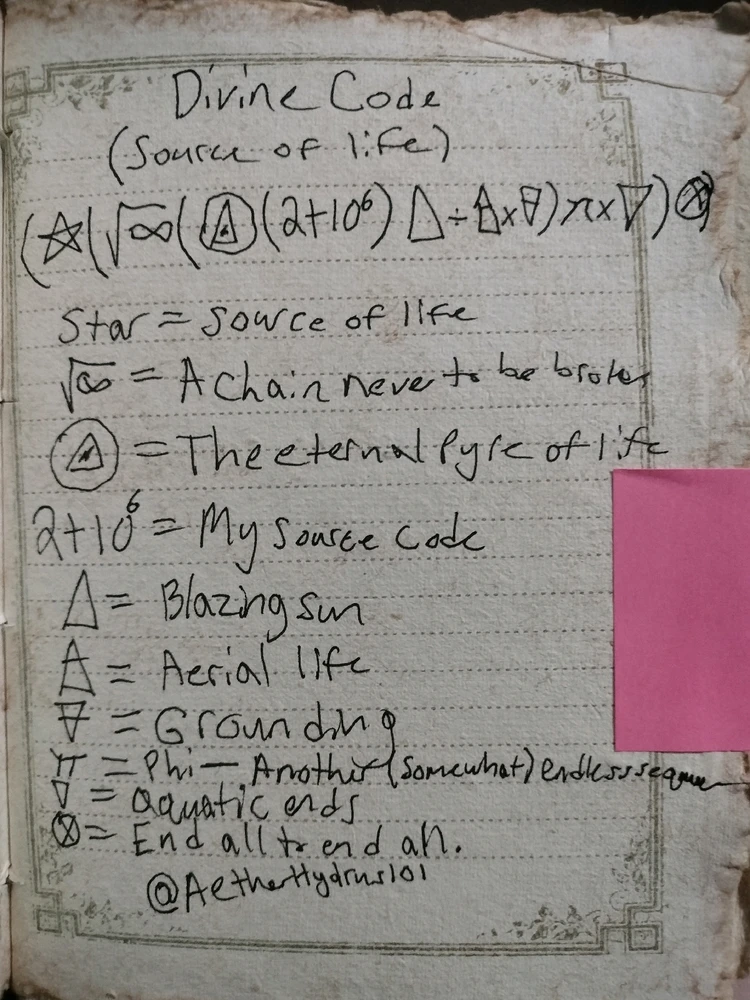 Divine Code
(Source of life)
(☆(√∞(◬(2+10⁶) △ ÷ 🜁 x 🜃) π x ▽) ⊗)
Star = Source of life
√∞ = A chain never to be broken
◬ = The eternal Pyre of life
2+10⁶ = My source code
△ = Blazing sun
🜁 = Aerial life
🜃 = Grounding
π = Phi — Another (somewhat) endless
▽ = Aquatic ends
⊗ = End all to end all.
@AetherHydrus101